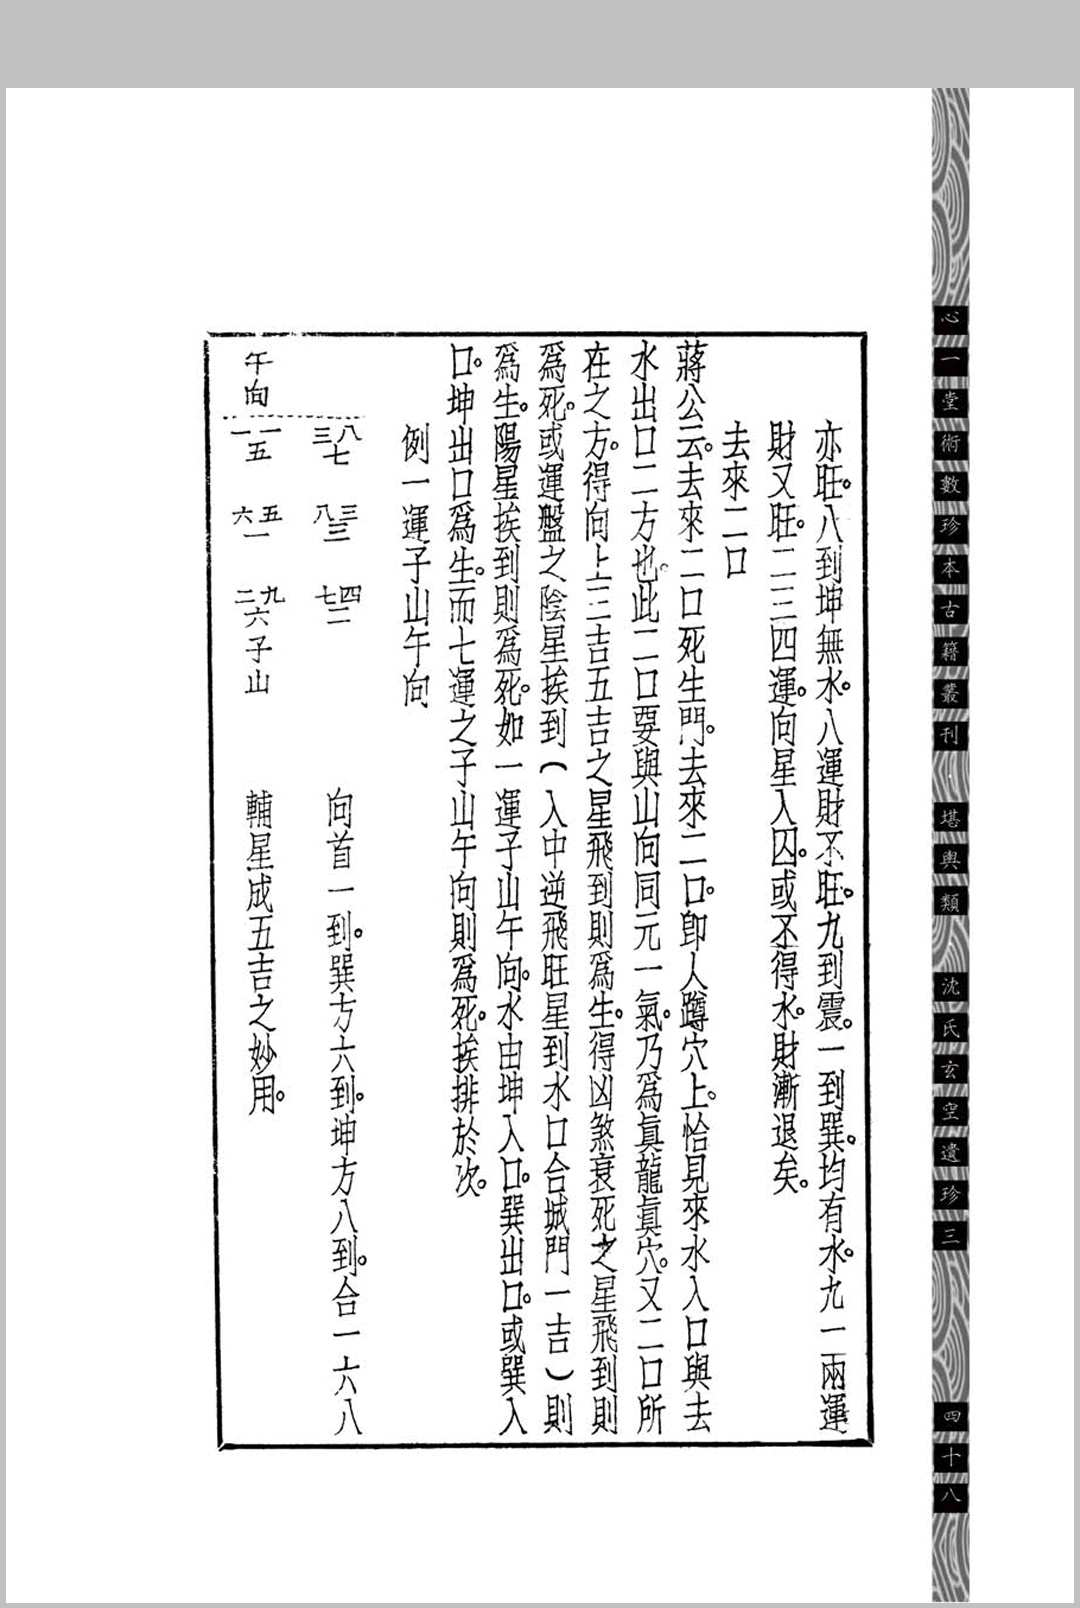 心一堂術數珍本古籍叢刊 堪輿類 沈氏玄空遺珍三 四十八
亦旺。八到坤無水。八運財不旺。九到震。一到巽。均有水。九一兩運
財又旺。二三四運。向星入囚。或不得水。財漸退矣。
去來二口
蔣公云。去來二口死生門。去來二口。卽人蹲穴上。恰見來水入口與去
水出口二方也。此二口要與山向同元一氣。乃爲眞龍眞穴。又二口所
在之方。得向上三吉五吉之星飛到則爲生。得凶煞衰死之星飛到則
爲死。或運盤之陰星挨到(入中逆飛旺星到水口合城門一吉)則
爲生。陽星挨到則爲死。如一運子山午向。水由坤入口。巽出口。或巽入
口。坤出口爲生。而七運之子山午向則爲死。挨排於次。
例一運子山午向
八三 三八 四七
七 三 二
向首一到。巽方六到。坤方八到。合一六八
午向
一一 五六 九二
五 一 六
子山
輔星成五吉之妙用。